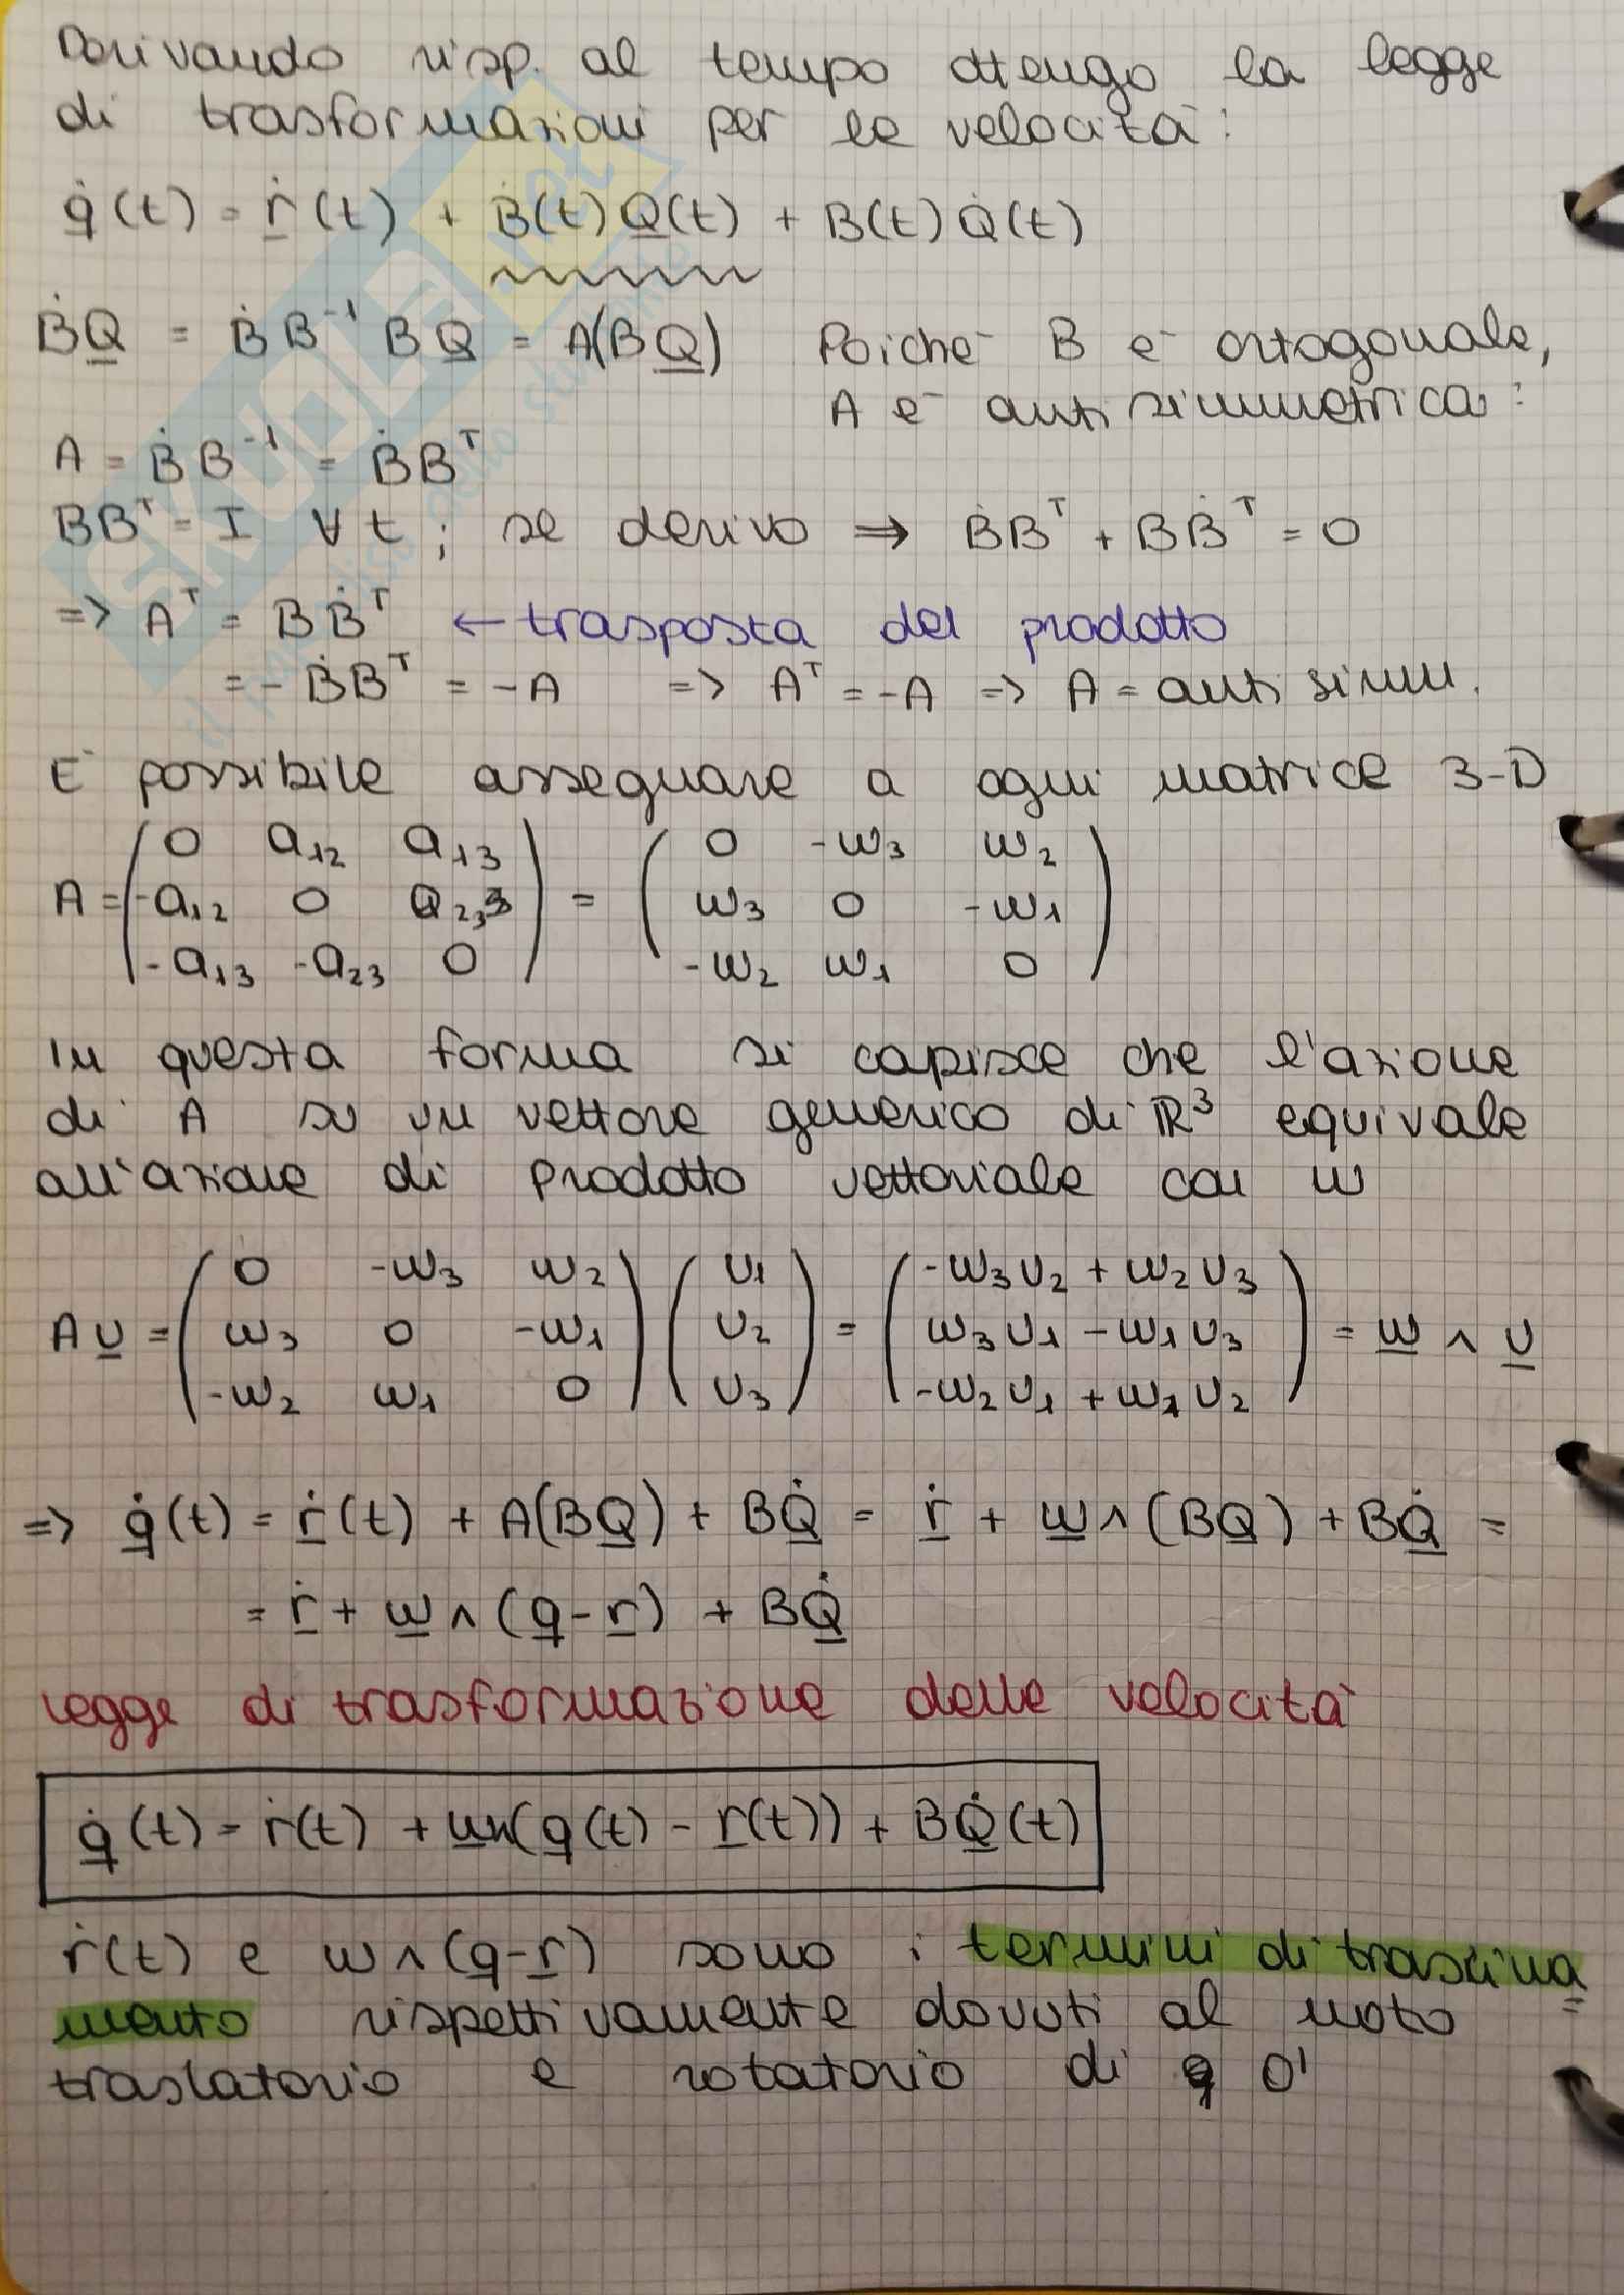 Derivando risp. al tempo ottengo la legge
di trasformazioni per le velocità:
q̇(t) = ṙ(t) + Ḃ(t)Q(t) + B(t)Q̇(t)
ḂQ = ḂB⁻¹BQ = A(BQ) Poiché B è ortogonale,
A è antisimmetrica:
A = ḂB⁻¹ = ḂBᵀ
BBᵀ = I ∀t ; se derivo ⇒ ḂBᵀ + BḂᵀ = 0
=> Aᵀ = BḂᵀ ← trasposta del prodotto
= -ḂBᵀ = -A => Aᵀ = -A => A = antisimm.
E' possibile assegnare a ogni matrice 3-D
A = ( 0 a₁₂ a₁₃ ) = ( 0 -w₃ w₂ )
( -a₁₂ 0 a₂,₃ ) ( w₃ 0 -w₁ )
( -a₁₃ -a₂₃ 0 ) ( -w₂ w₁ 0 )
In questa forma si capisce che l'azione
di A su un vettore generico di ℝ³ equivale
all'azione di prodotto vettoriale con w
( 0 -w₃ w₂ ) ( υ₁ ) ( -w₃υ₂ + w₂υ₃ )
Aυ = ( w₃ 0 -w₁ ) ( υ₂ ) = ( w₃υ₁ - w₁υ₃ ) = w ∧ υ
( -w₂ w₁ 0 ) ( υ₃ ) ( -w₂υ₁ + w₁υ₂ )
=> q̇(t) = ṙ(t) + A(BQ) + BQ̇ = ṙ + w∧(BQ) + BQ̇ =
= ṙ + w∧(q-r) + BQ̇
legge di trasformazione delle velocità
q̇(t) = ṙ(t) + w∧(q(t) - r(t)) + BQ̇(t)
ṙ(t) e w∧(q-r) sono i termini di trascina=
mento rispettivamente dovuti al moto
traslatorio e rotatorio di O'